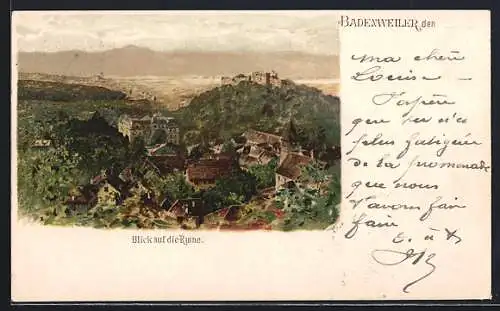 BADENWEILER, den
ma chère
Louise
J'espère
que tu n'es
plus fatiguée
de la promenade
que nous
t'avons fait
faire
Blick auf die Ruine.